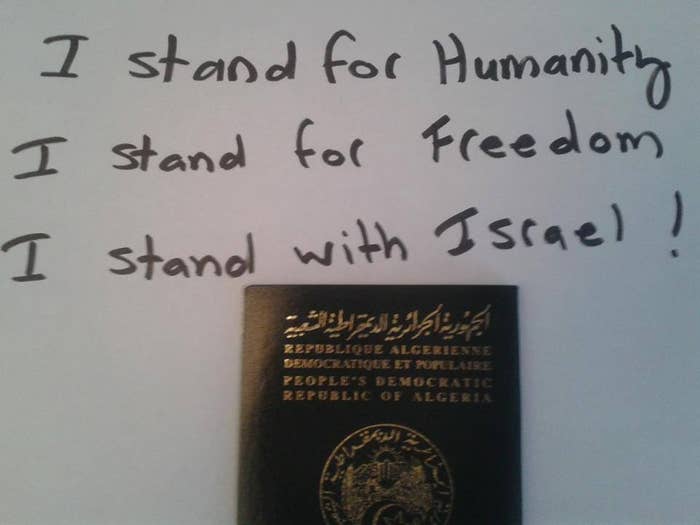 I stand for Humanity
I stand for Freedom
I stand with Israel !
الجمهورية الجزائرية الديمقراطية الشعبية
REPUBLIQUE ALGERIENNE
DEMOCRATIQUE ET POPULAIRE
PEOPLE'S DEMOCRATIC
REPUBLIC OF ALGERIA